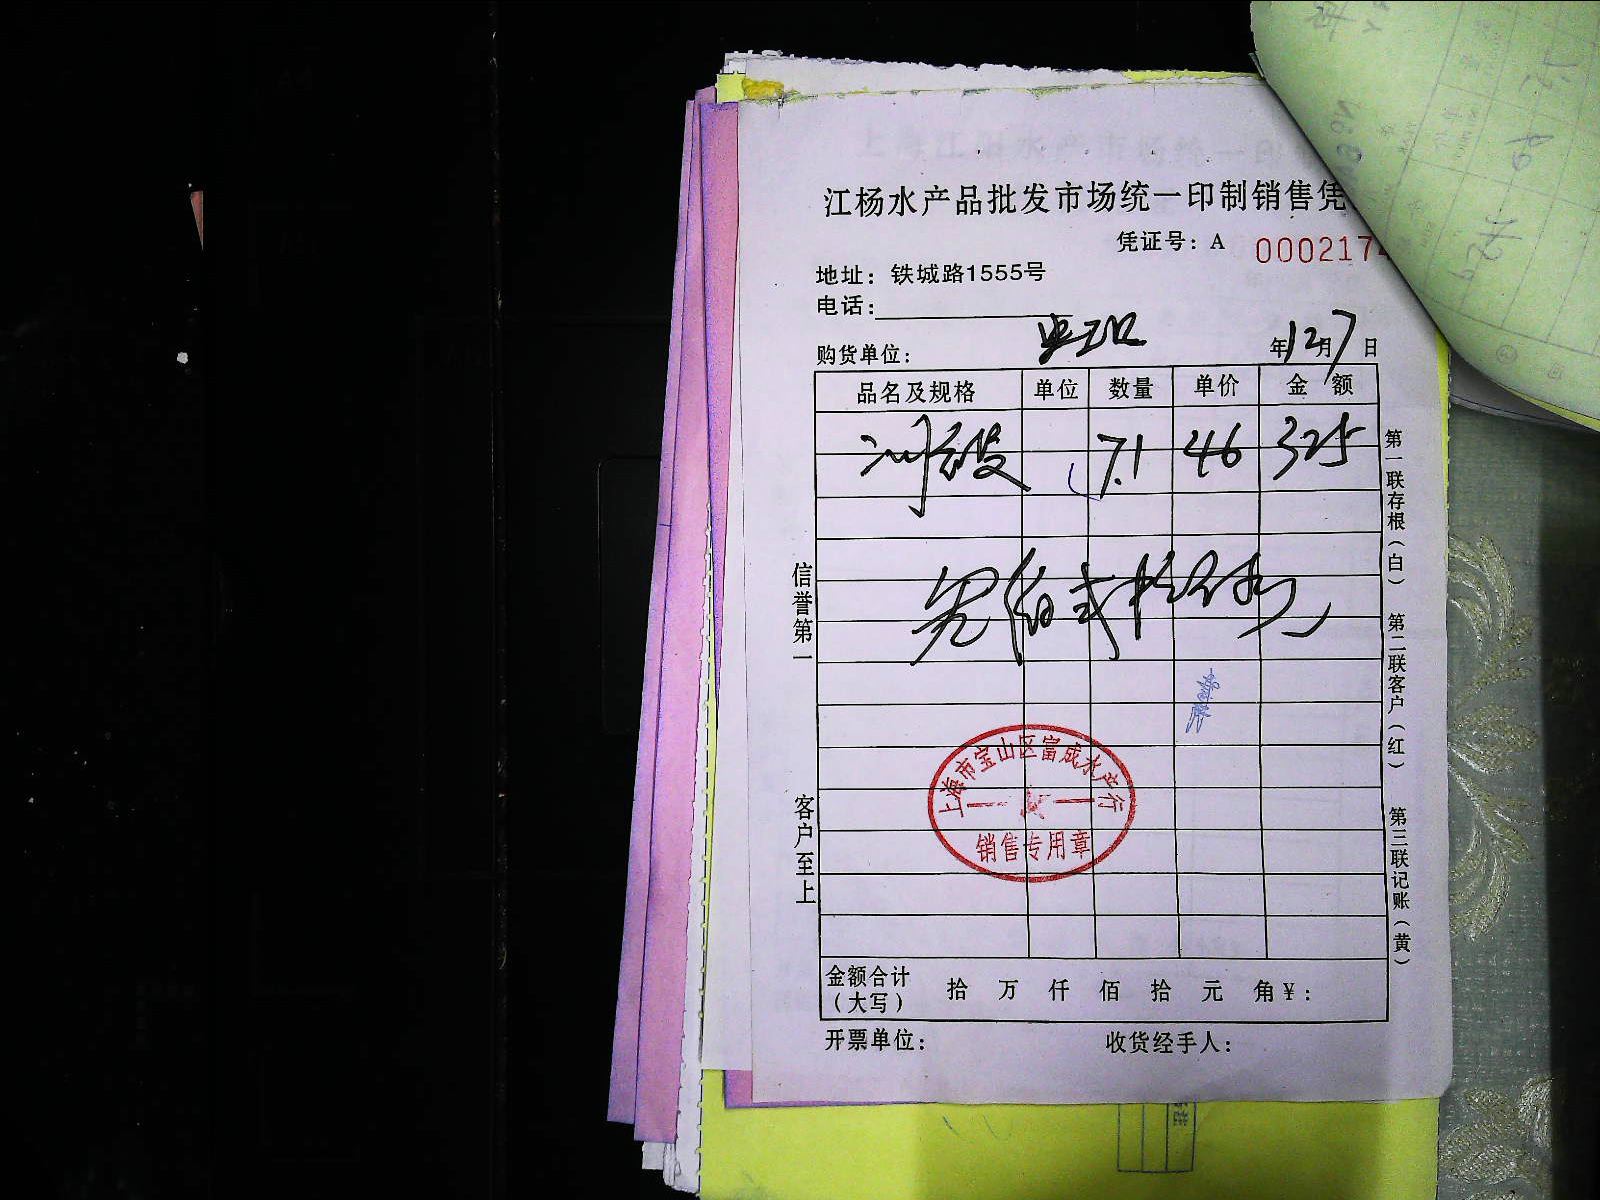 江杨水产品批发市场统一印制销售凭
凭证号：A 0002174
地址：铁城路1555号
电话：
购货单位：
年12月7日
品名及规格 单位 数量 单价 金额
7.1 46 325
叁佰贰拾伍元
信誉第一
客户至上
上海市宝山区富成水产行
销售专用章
第一联存根（白） 第二联客户（红） 第三联记账（黄）
金额合计（大写） 拾 万 仟 佰 拾 元 角￥：
开票单位： 收货经手人：